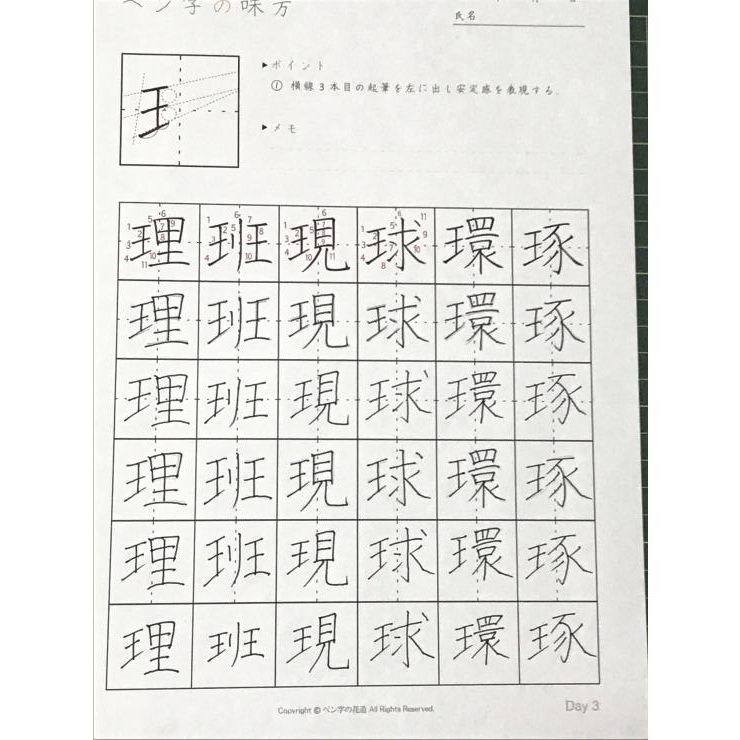 ペン字の味方
氏名
▶ポイント
① 横線3本目の起筆を左に出し安定感を表現する.
▶メモ
理 班 現 球 環 琢
理 班 現 球 環 琢
理 班 現 球 環 琢
理 班 現 球 環 琢
理 班 現 球 環 琢
理 班 現 球 環 琢
Copyright © ペン字の花道 All Rights Reserved.
Day 3